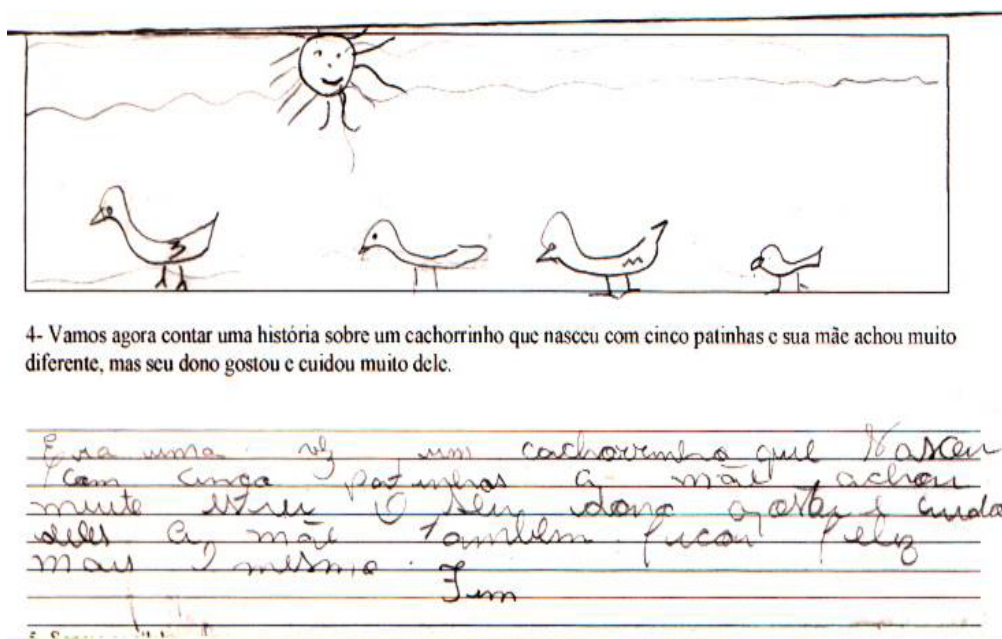 4- Vamos agora contar uma história sobre um cachorrinho que nasceu com cinco patinhas e sua mãe achou muito
diferente, mas seu dono gostou e cuidou muito dele.
Era uma vez um cachorrinho que Nasceu
com cinga patinhas a mãe achou
muinte O seu dono e cuida
deles a mãe também ficou feliz
mais mesmo.
Fim